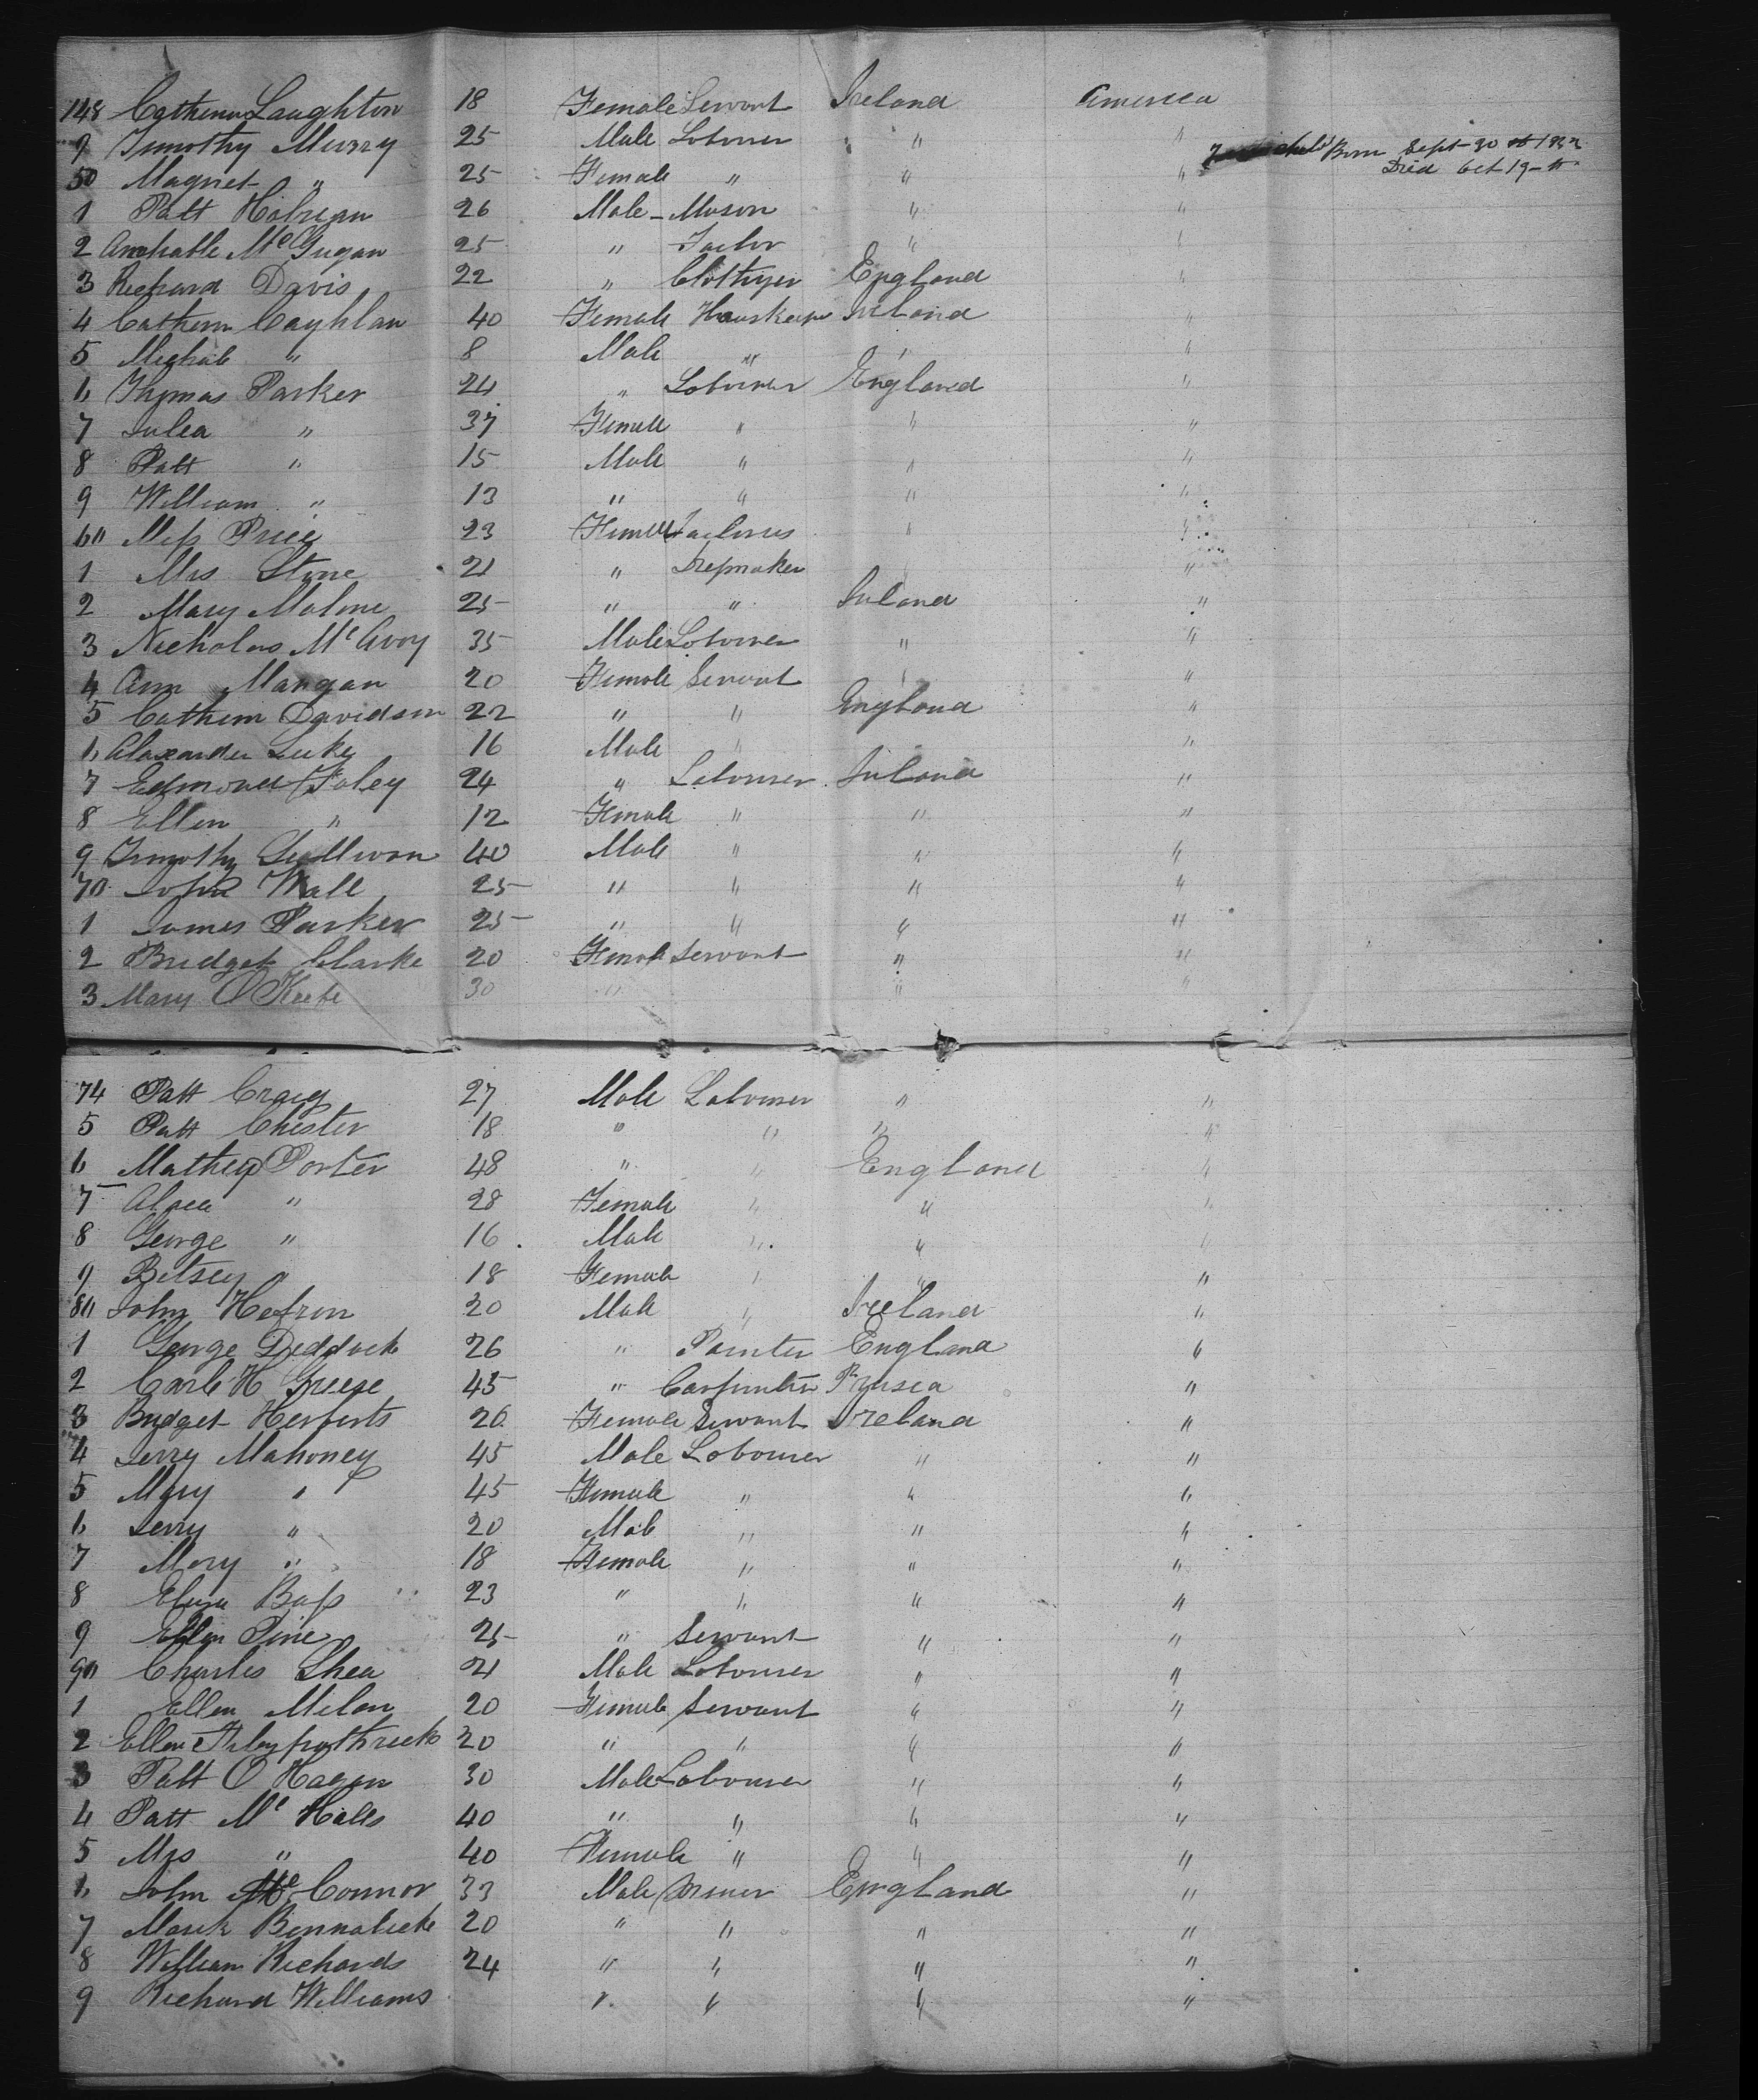 148 Cathern Laughton 18 Female Servant Ireland America
9 Timothy Murry 25 Male Labourer " "
50 Magret " 25 Female " " " child Born Sept 30th
Died Oct 19th
1 Patt Hobrigan 26 Male Mason " "
2 Archable McGugan 25 " Taylor " "
3 Richard Davis 22 " Clothyer England "
4 Cathern Cayhlan 40 Female Houskeeper Ireland "
5 Michale " 8 Male " " "
6 Thomas Parker 24 " Labourer England "
7 Julea " 37 Female " " "
8 Patt " 15 Male " " "
9 William " 13 " " " "
60 Miss Price 23 Female Tayloress " "
1 Mrs Stone 21 " Dressmaker " "
2 Mary Malone 25 " " Ireland "
3 Nicholas McAvoy 35 Male Labourer " "
4 Ann Mangan 20 Female Servant " "
5 Cathern Davidson 22 " " England "
6 Alaxander Luke 16 Male " "
7 Edmond Foley 24 " Labourer Ireland "
8 Ellen " 12 Female " " "
9 Timothy Sullivan 40 Male " " "
70 John Wall 25 " " " "
1 James Parker 25 " " " "
2 Bridget Clarke 20 Female Servant " "
3 Mary O Keefe 30 " " "
74 Patt Craig 27 Male Labourer " "
5 Patt Chester 18 " " " "
6 Mathew Porter 48 " " England "
7 " 28 Female " " "
8 George " 16 Male " " "
9 Betsey " 18 Female " " "
80 John Hefron 20 Male " Ireland "
1 George Deddock 26 " Painter England "
2 Carle H Greese 45 " Carpenter Prusea "
3 Bridget Herberts 26 Female Servant Ireland "
4 Jerry Mahoney 45 Male Labourer " "
5 Mary " 45 Female " " "
6 Jerry " 20 Male " " "
7 Mary " 18 Female " " "
8 Eliza Bass 23 " " " "
9 Ellen Pine 25 " Servant " "
90 Charles Shea 21 Male Labourer " "
1 Ellen Milan 20 Female Servant " "
2 Ellen 20 " " " "
3 Patt O Hagan 30 Male Labourer " "
4 Patt Mc Halls 40 " " " "
5 Mrs " 40 Female " " "
6 John Mc Connor 33 Male Miner England "
7 Mark Bennalick 20 " " " "
8 William Richards 24 " " " "
9 Richard Williams " " " "